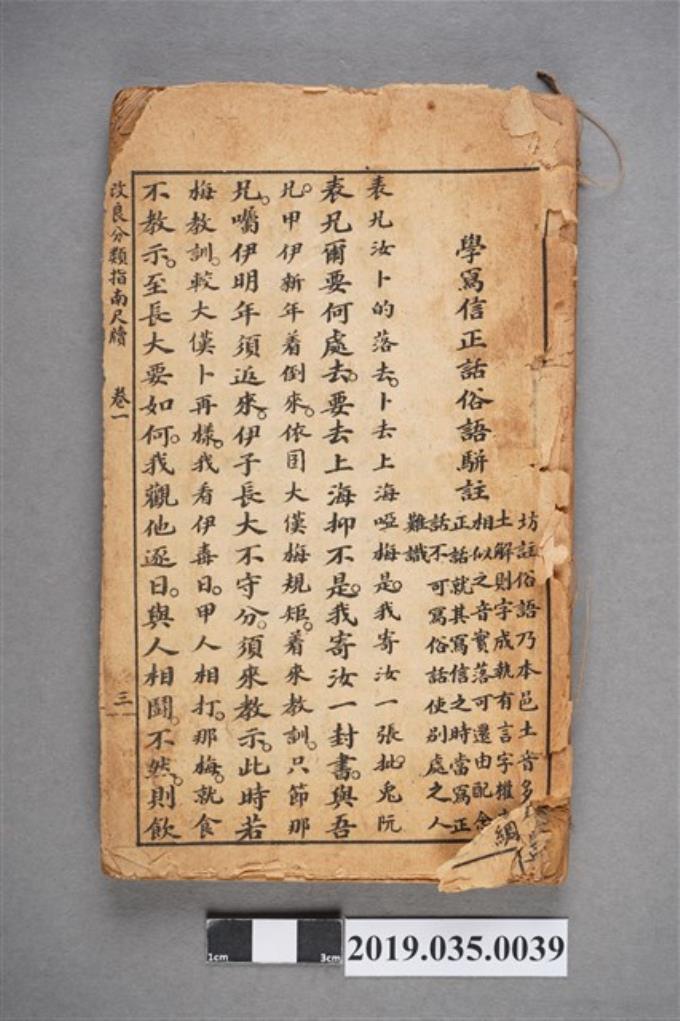 學寫信正話俗語駢註
坊註俗語乃本邑土音多
土解則字成執有言字權
相似之音實落可還由配合
正話就其寫信之時當寫正
話不可寫俗話使別處之人
難識
表兄汝卜的落去。卜去上海啞梅是。我寄汝一張批。兎阮
表兄爾要何處去。要去上海抑不是。我寄汝一封書。與吾
兄。甲伊新年着倒來。依囝大漢梅規矩。着來教訓。只節那
兄。囑伊明年須返來。伊子長大不守分。須來教示。此時若
梅教訓。較大漢卜再樣。我看伊毒日。甲人相打。那梅。就食
不教示。至長大要如何。我觀他逐日。與人相鬪。不然。則飲
改良分類指南尺牘 卷一 三
綱
1cm 3cm
2019.035.0039